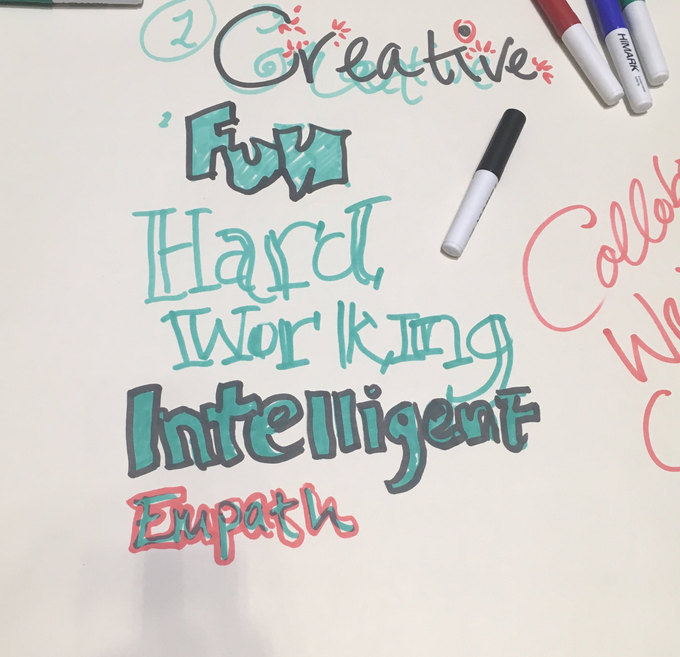 1 Creative
2 Fun
Hard
Working
Intelligent
Empath
HIMARK
Collab
We
C